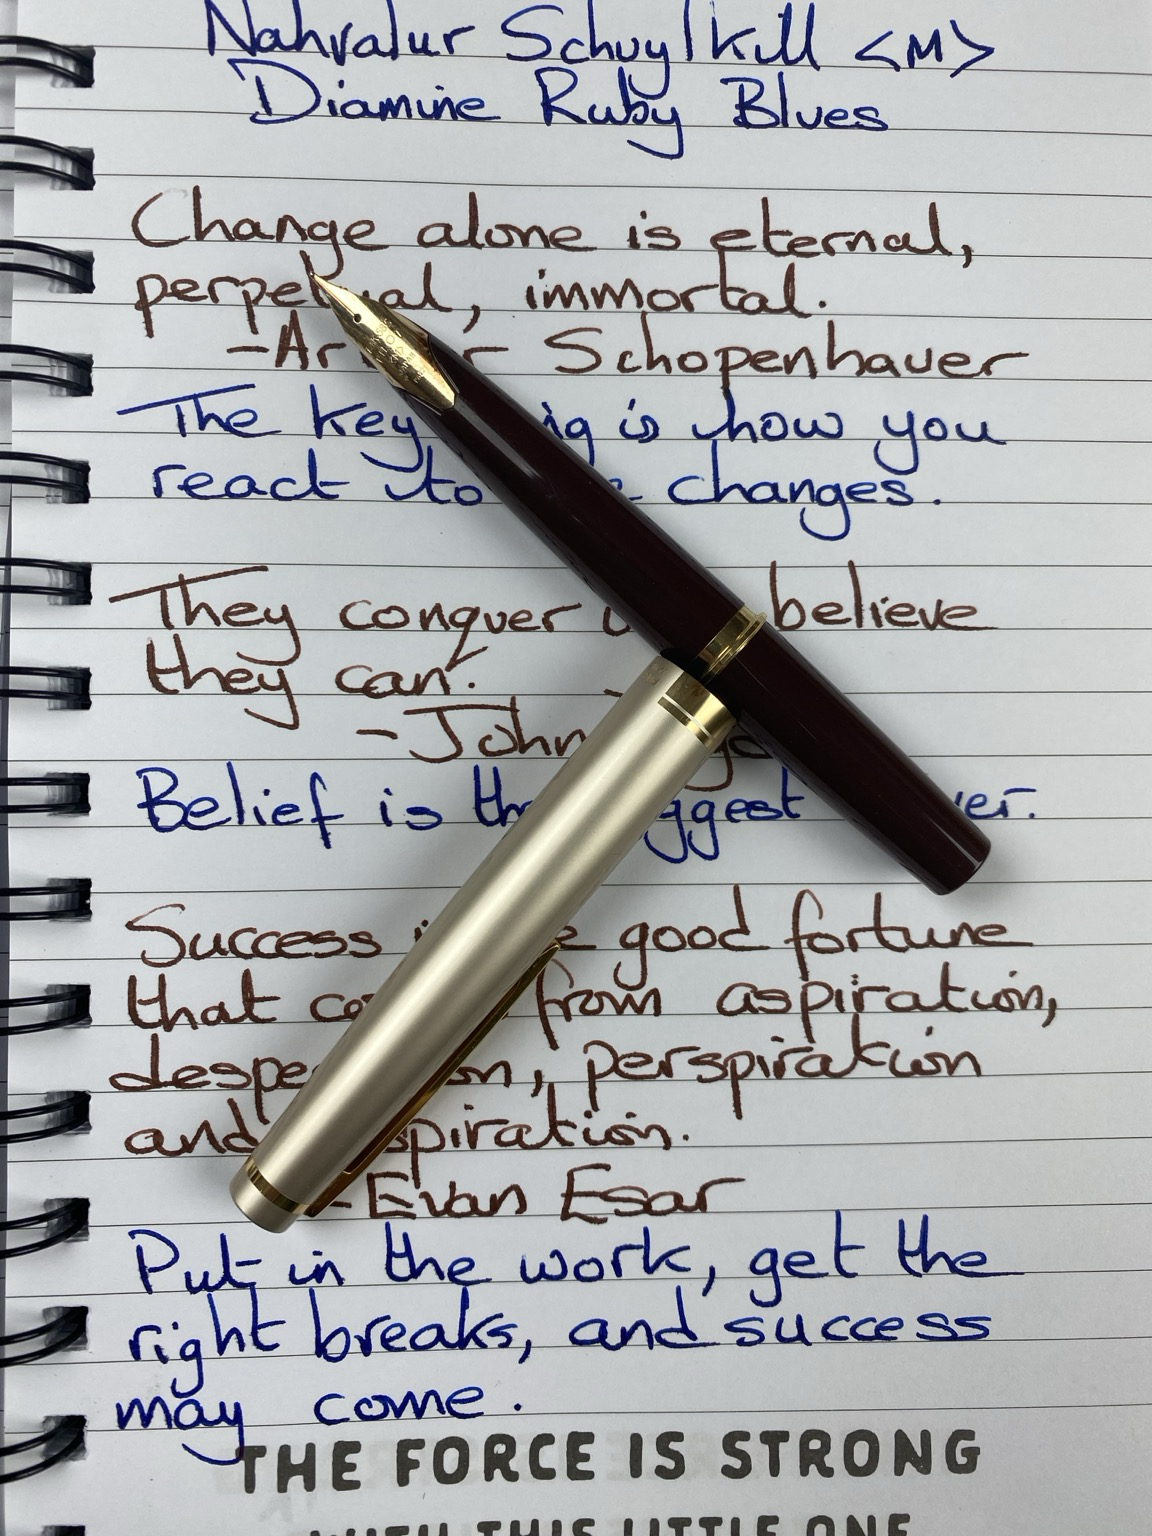 Nahvalur Schuylkill <M>
Diamine Ruby Blues
Change alone is eternal,
perpetual, immortal.
- Schopenhauer
The key is how you
react to changes.
They conquer believe
they can.
- John
Belief is the biggest
Success good fortune
that from aspiration,
perspiration
and
- Evan Esar
Put in the work, get the
right breaks, and success
may come.
THE FORCE IS STRONG
WITH THIS LITTLE ONE